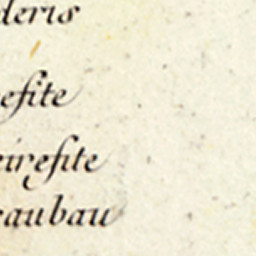 deris
efite
eirefite
eaubau